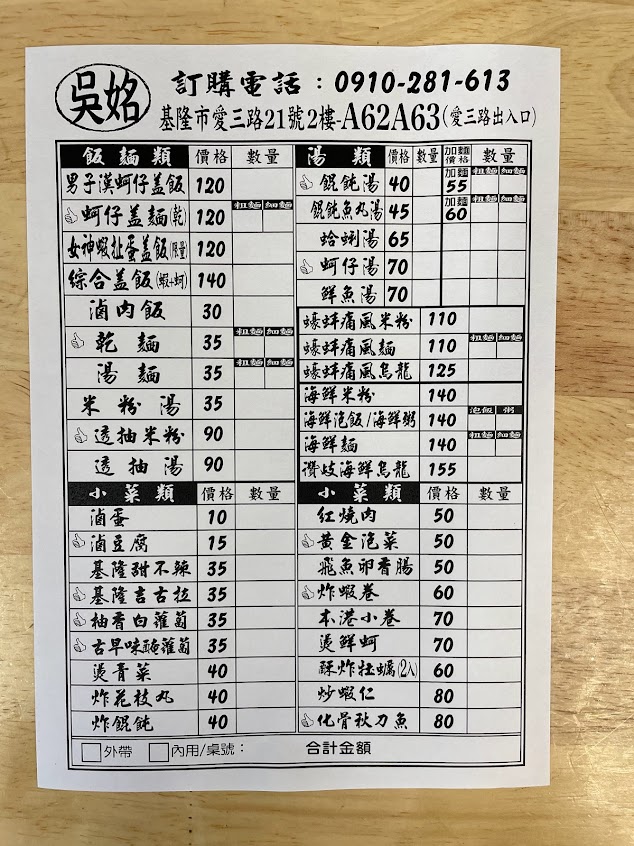 吳姳
訂購電話：0910-281-613
基隆市愛三路21號2樓-A62A63(愛三路出入口)
飯麵類 價格 數量
男子漢蚵仔盖飯 120
蚵仔盖麵(乾) 120 粗麵 細麵
女神蝦扯蛋盖飯(限量) 120
綜合盖飯(蝦+蚵) 140
滷肉飯 30
乾麵 35 粗麵 細麵
湯麵 35 粗麵 細麵
米粉湯 35
透抽米粉 90
透抽湯 90
湯類 價格 數量 加麵價格 數量
餛飩湯 40 加麵 55 粗麵 細麵
餛飩魚丸湯 45 加麵 60 粗麵 細麵
蛤蜊湯 65
蚵仔湯 70
鮮魚湯 70
蠔蚌痛風米粉 110
蠔蚌痛風麵 110 粗麵 細麵
蠔蚌痛風烏龍 125
海鮮米粉 140
海鮮泡飯/海鮮粥 140 泡飯 粥
海鮮麵 140 粗麵 細麵
讚岐海鮮烏龍 155
小菜類 價格 數量
滷蛋 10
滷豆腐 15
基隆甜不辣 35
基隆吉古拉 35
柚香白蘿蔔 35
古早味醃蘿蔔 35
燙青菜 40
炸花枝丸 40
炸餛飩 40
小菜類 價格 數量
紅燒肉 50
黃金泡菜 50
飛魚卵香腸 50
炸蝦卷 60
本港小卷 70
燙鮮蚵 70
酥炸牡蠣(2入) 60
炒蝦仁 80
化骨秋刀魚 80
外帶 內用/桌號： 合計金額